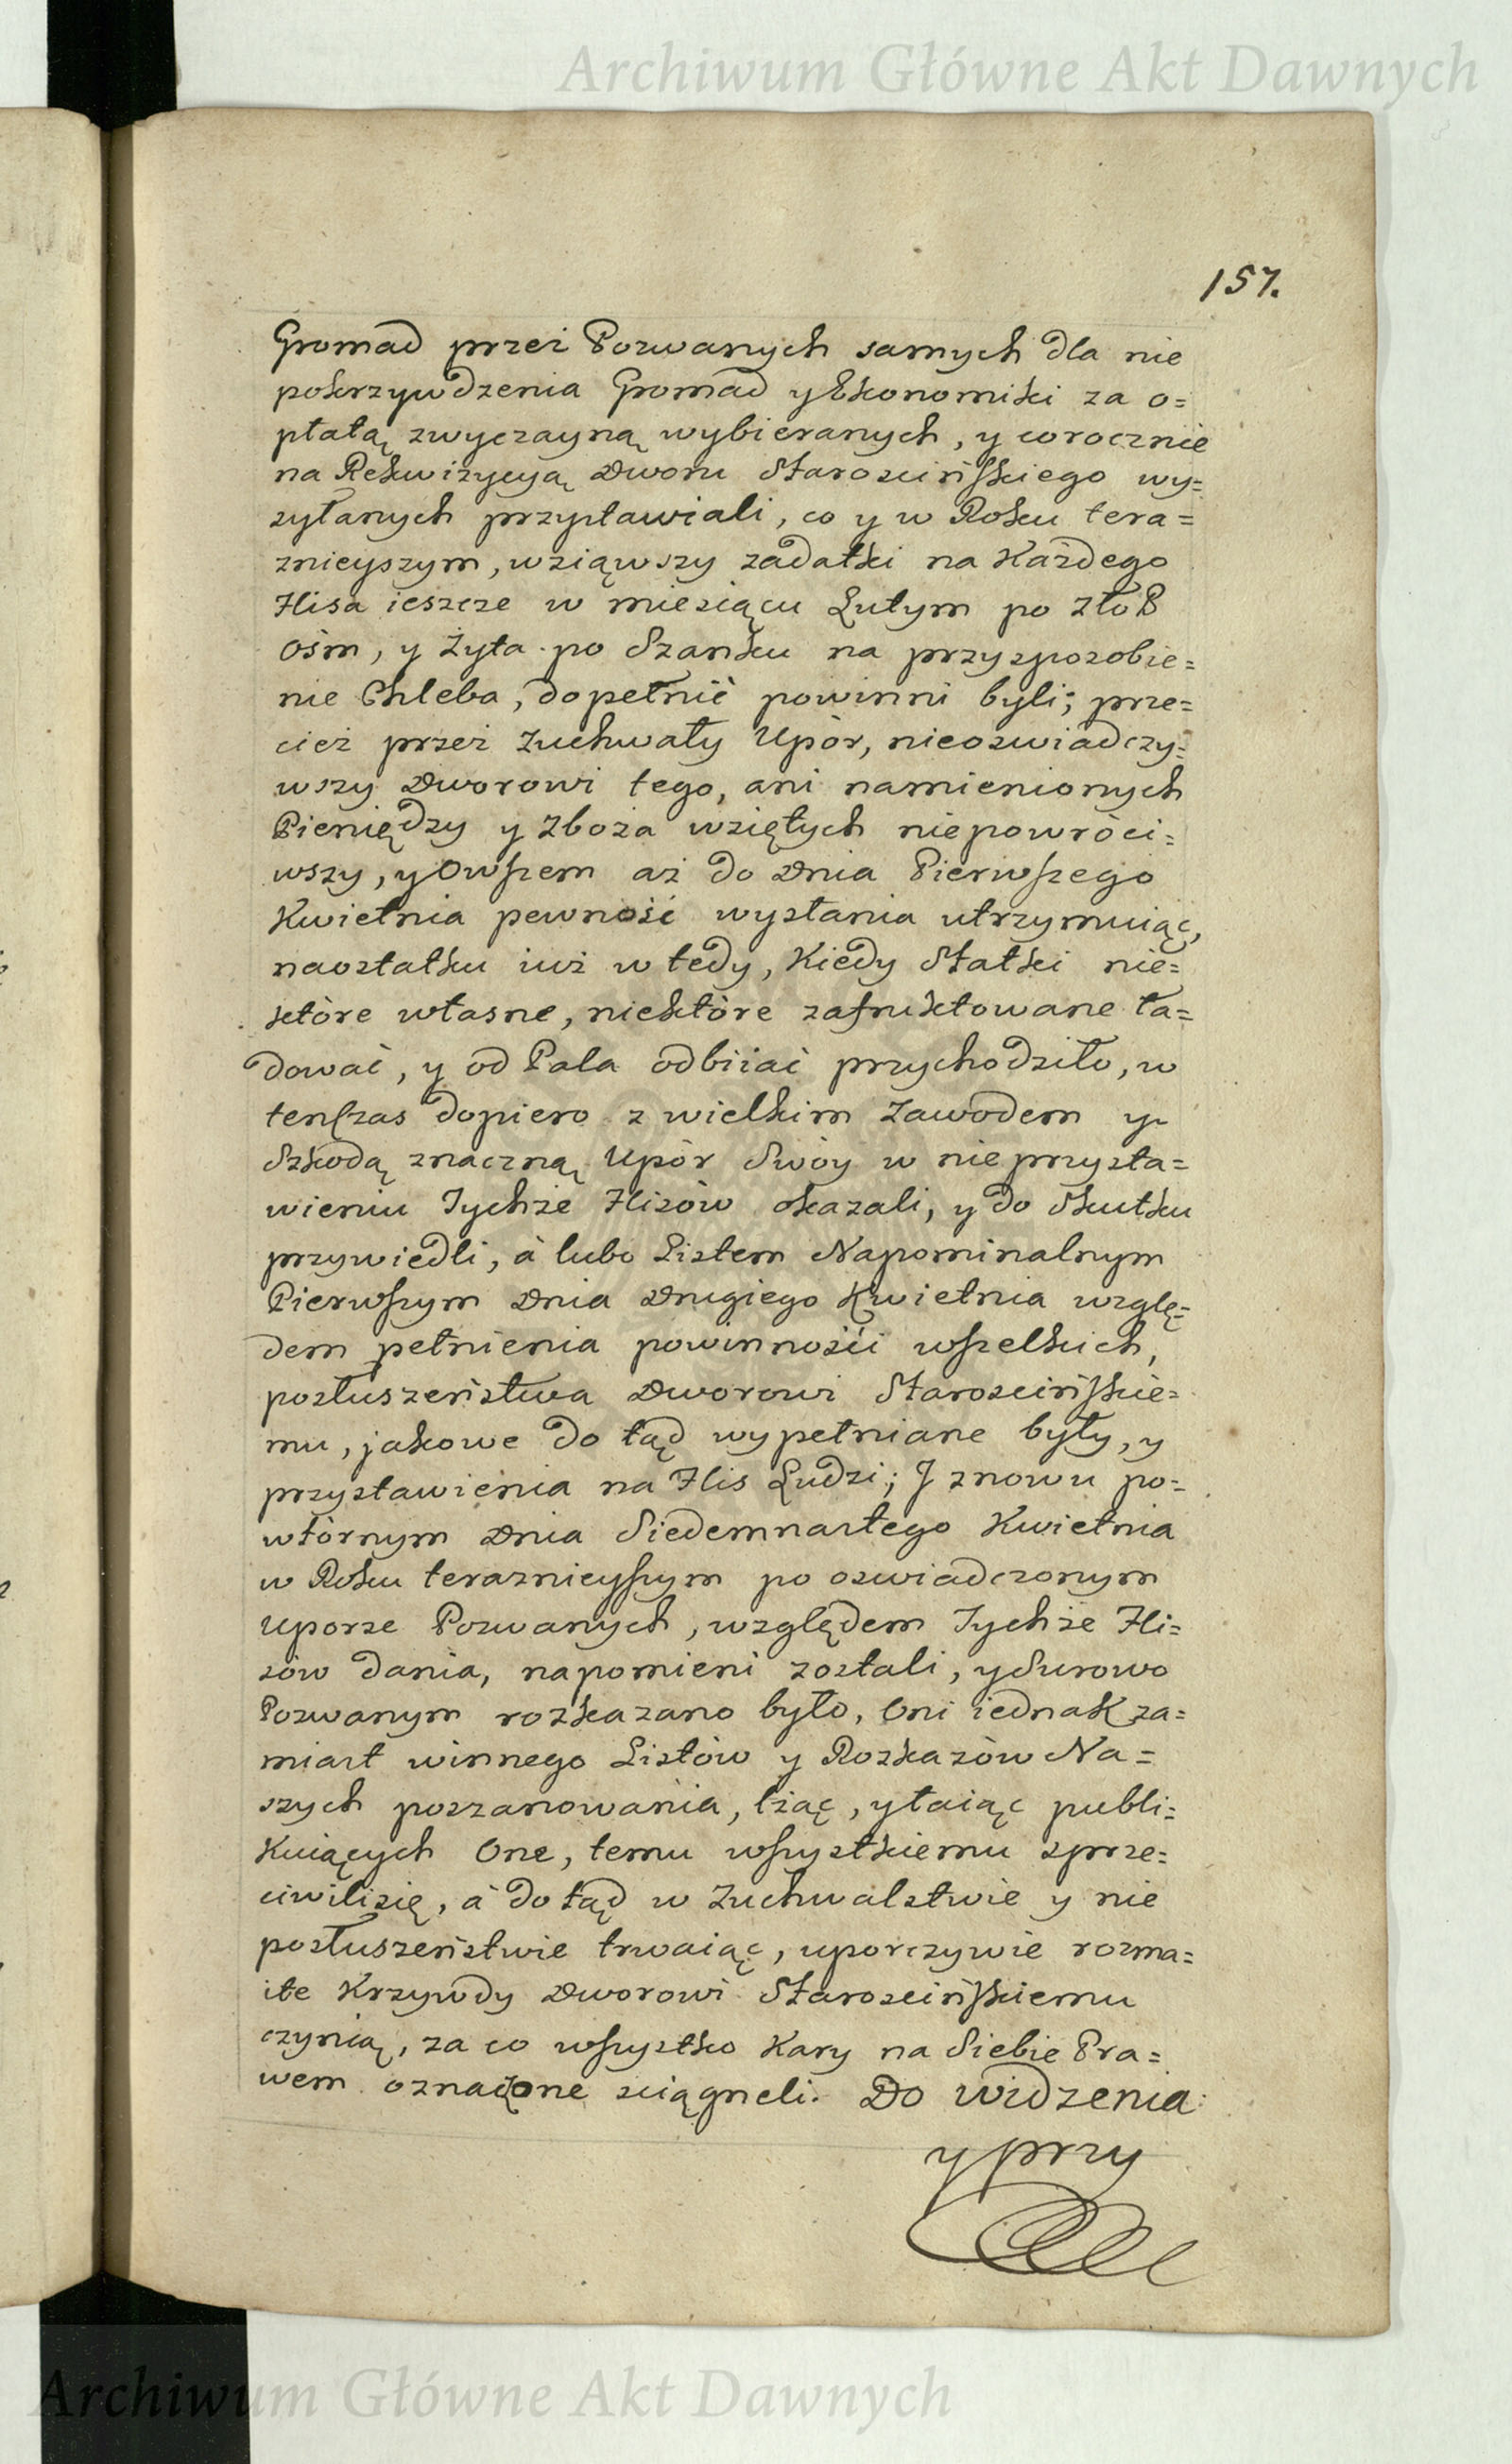 Archiwum Główne Akt Dawnych
157.
Gromad przez Pozwanych samych dla nie
pokrzywdzenia Gromad y Ekonomiki za o=
płatą zwyczayną wybieranych, y corocznie
na Rekwizycyą Dworu Staroscińskiego wy=
syłanych przystawiali, co y w Roku tera=
znieyszym, wziąwszy zadatki na Każdego
Flisa ieszcze w miesiącu Lutym po Zło P
ośm, y Żyta po Szanku na przysposobie=
nie Chleba, dopełnić powinni byli; prze=
cież przez Zuchwały Upór, nieoswiadczy=
wszy Dworowi tego, ani namienionych
Pieniędzy y Zboża wziętych niepowróci=
wszy, y Owszem aż do Dnia Pierwszego
Kwietnia pewność wysłania utrzymuiąc,
naostatku iuż w tedy, Kiedy Statki nie=
które własne, niektóre zafruktowane ła=
dować, y od Pala odbiiać przychodziło, w
tenczas dopiero z wielkim Zawodem y
Szkodą znaczną Upór Swóy w nieprzysta=
wieniu Tychże Flisów okazali, y do Skutku
przywiedli, à lubo Listem Napominalnym
Pierwszym Dnia Drugiego Kwietnia wzglę=
dem pełnienia powinności wszelkich,
posłuszeństwa Dworowi Staroscińskie=
mu, jakowe do tąd wypełniane były, y
przystawienia na Flis Ludzi; J znowu po=
wtórnym Dnia Siedemnastego Kwietnia
w Roku teraznieyszym po oswiadczonym
Uporze Pozwanych, względem Tychże Fli=
sów dania, napomieni zostali, y Surowo
Pozwanym rozkazano było, Oni iednak za=
miast winnego Listów y Rozkazów Na=
szych poszanowania, lżąc, y łaiąc publi=
kuiących One, temu wszystkiemu sprze=
ciwilisię, à do tąd w Zuchwalstwie y nie
posłuszeństwie trwaiąc, uporczywie rozma=
ite Krzywdy Dworowi Staroscińskiemu
czynią, za co wszystko Kary na Siebie Pra=
wem oznaczone sciągneli. Do widzenia
y przy
Archiwum Główne Akt Dawnych